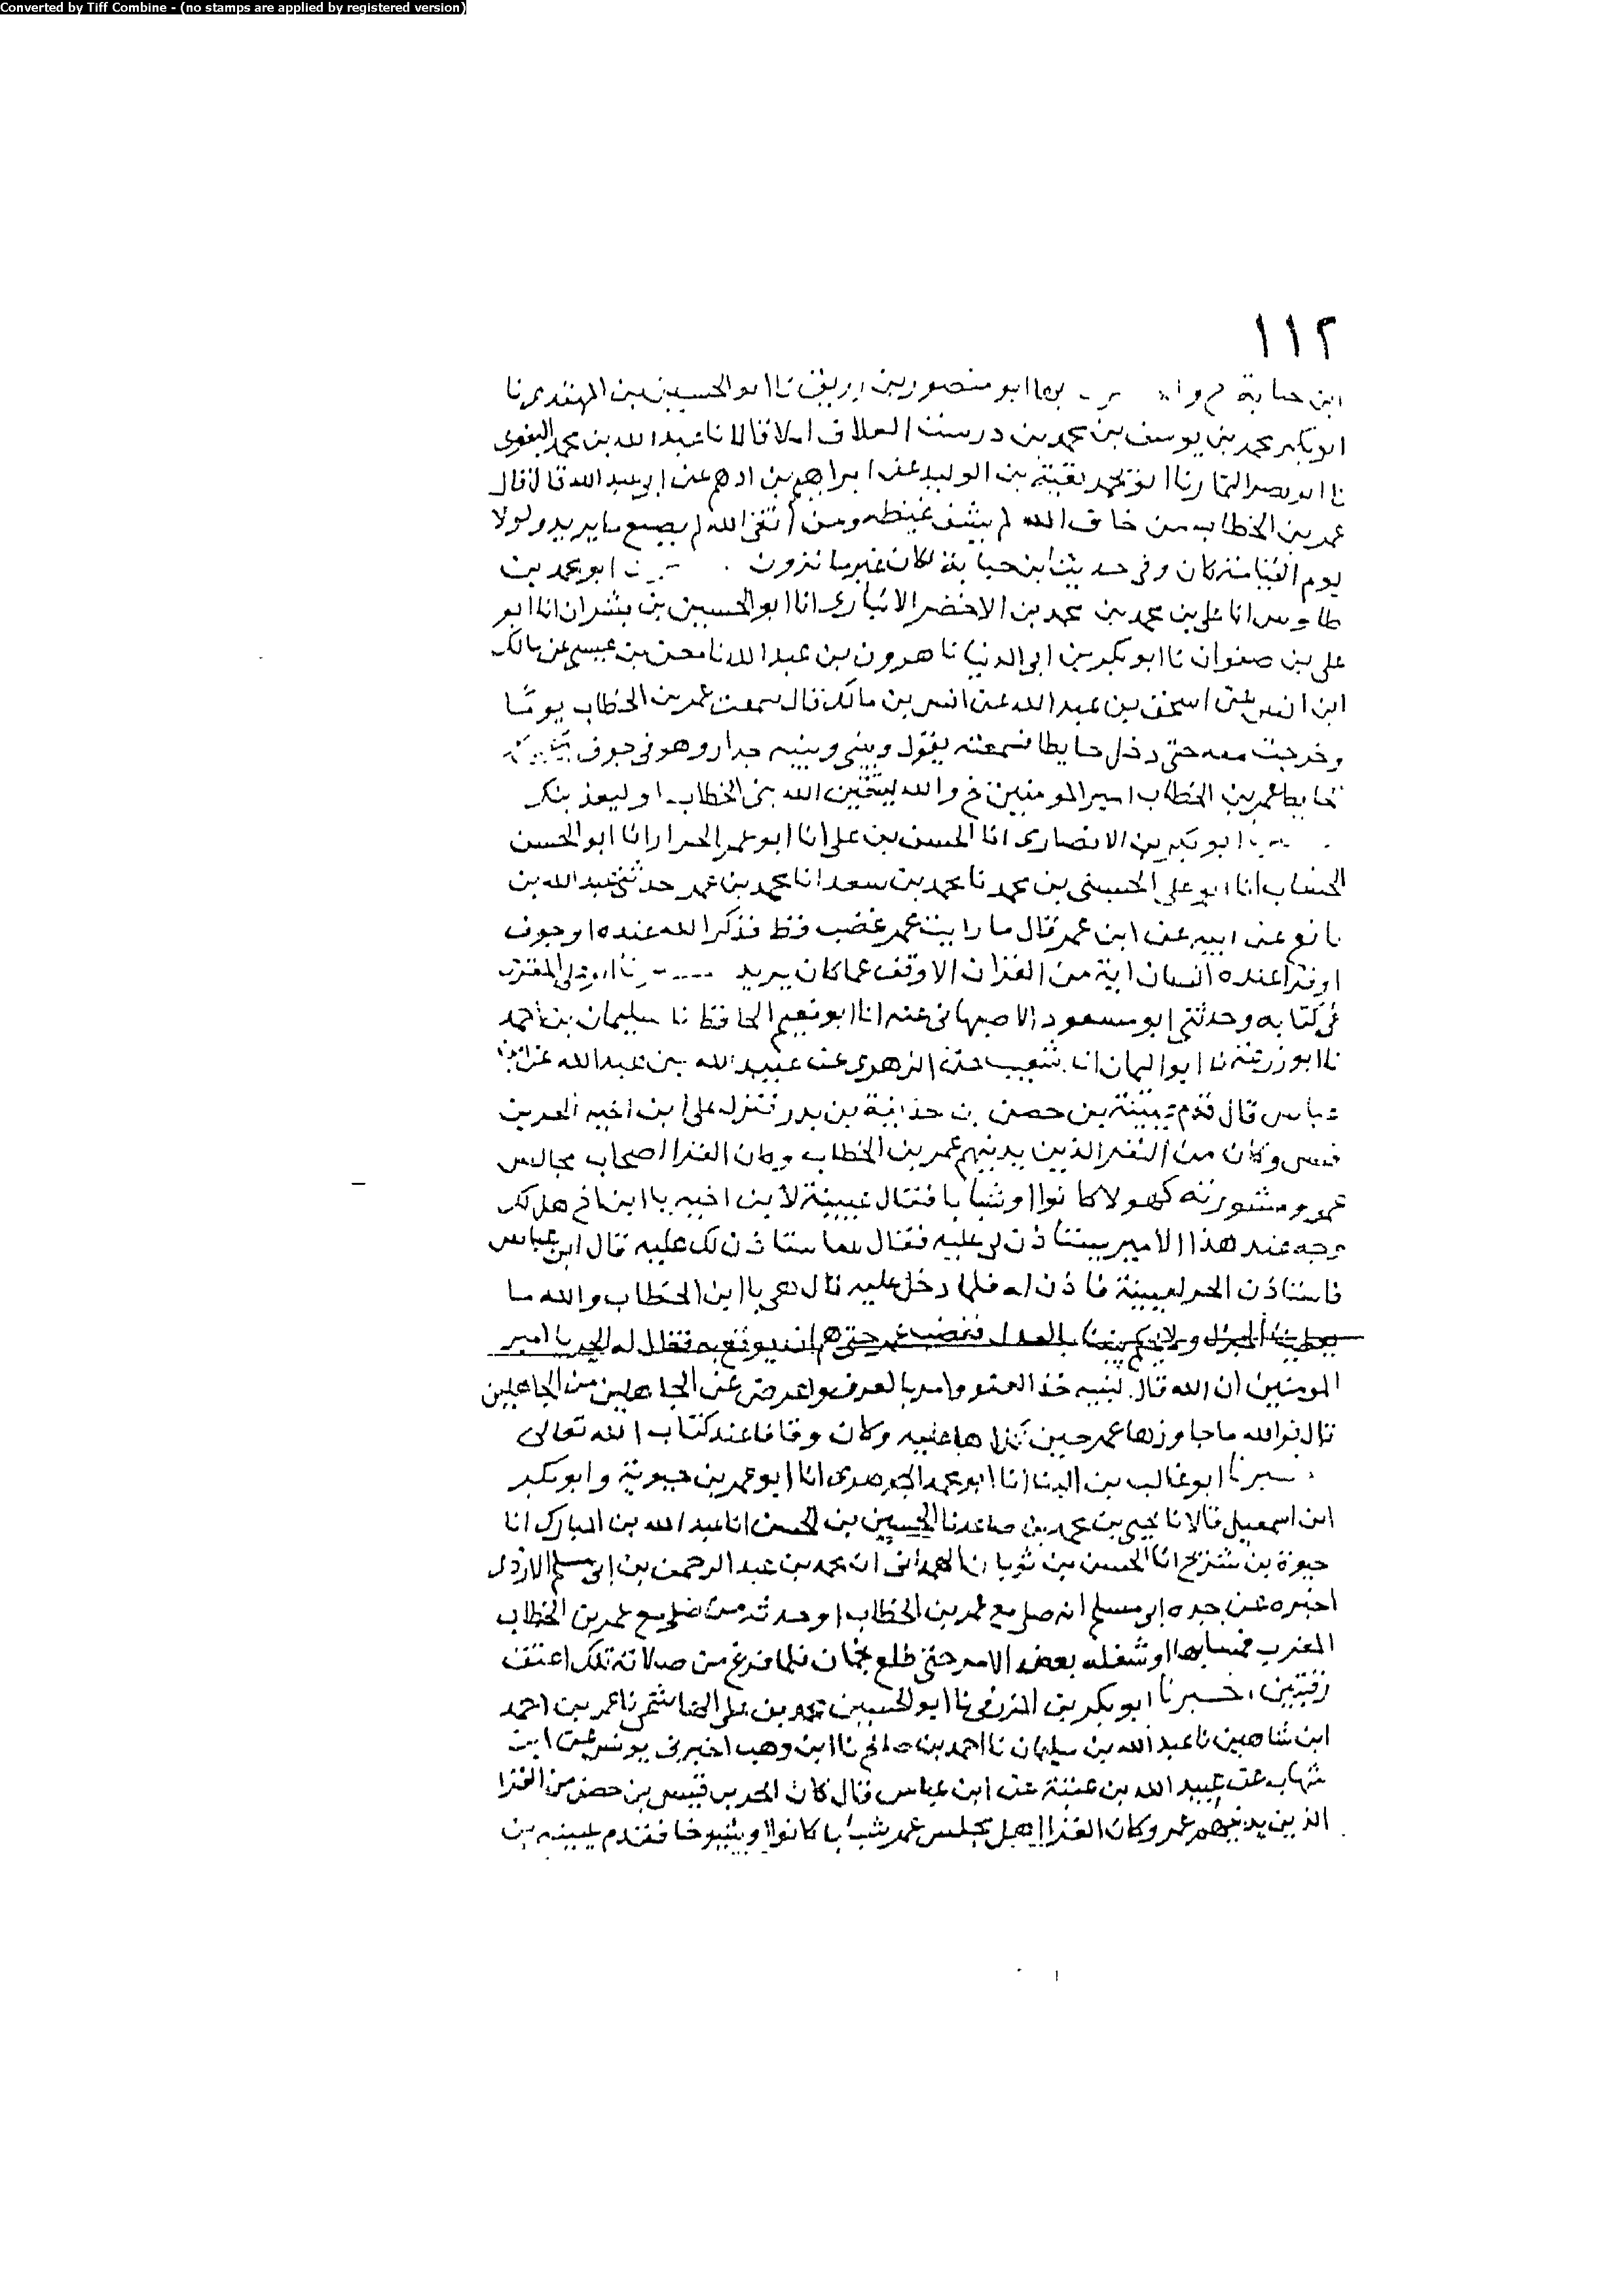 Converted by Tiff Combine - (no stamps are applied by registered version)
١١٢
ابن حبابة ابو منصور بن زريق نا ابو الحسين بن المهتدى نا
ابو بكر محمد بن يوسف بن محمد بن درست العلاف املا قالا نا عبد الله بن محمد البغوى
نا ابو نصر التمار نا ابو محمد بقية بن الوليد عن ابراهيم بن ادهم عن ابى عبد الله قال قال
عمر بن الخطاب من خاف الله لم يشف غيظه ومن اتقى الله لم يصنع ما يريد ولولا
يوم القيامة كان وفى حديث ابن حبابة لكان غير ما ترون ابو محمد بن
طاوس انا على بن محمد بن محمد بن الاخضر الانبارى انا ابو الحسين بن بشران انا ابو
على بن صفوان نا ابو بكر بن ابى الدنيا نا هرون بن عبد الله نا معن بن عيسى عن مالك
ابن انس عن اسحق بن عبد الله عن انس بن مالك قال سمعت عمر بن الخطاب يومًا
وخرجت معه حتى دخل حايطا فسمعته يقول وبينى وبينه جدار وهو فى جوف
الحايط عمر بن الخطاب امير المومنين بخ والله ليتقين الله بنى الخطاب او ليعذبنك
ابو بكر بن الانصارى انا الحسن بن على انا ابو عمر الحرار انا ابو الحسن
الخشاب انا ابو على الحسين بن محمد نا محمد بن سعد انا محمد بن عمر حدثنى عبد الله بن
نافع عن ابيه عن ابن عمر قال ما رايت عمر غضب قط فذكر الله عنده او خوف
او قرا عنده انسان اية من القران الا وقف عما كان يريد نا ابو على المقرى
فى كتابه وحدثنى ابو مسعود الاصبهانى عنه انا ابو نعيم الحافظ نا سليمان بن احمد
نا ابو زرعة نا ابو اليمان انا شعيب عن الزهرى عن عبيد الله بن عبد الله عن ابن
عباس قال قدم عيينة بن حصن بن حذيفة بن بدر فنزل على ابن اخيه الحر بن
قيس وكان من النفر الذين يدنيهم عمر بن الخطاب وكان القرا اصحاب مجالس
عمر ومشورته كهولا كانوا او شبابا فقال عيينة لابن اخيه يا ابن اخ هل لك
وجه عند هذا الامير يستاذن لى عليه فقال له استاذن لك عليه قال ابن عباس
فاستاذن الحر لعيينة فاذن له فلما دخل عليه قال هى يا ابن الخطاب والله ما
يعطينا الجزل ولا يحكم بيننا بالعدل فغضب عمر حتى هم ان يوقع به فقال له الحر يا امير
المومنين ان الله قال لنبيه خذ العفو وامر بالعرف واعرض عن الجاهلين من الجاهلين
قال فوالله ما جاوزها عمر حين تلاها عليه وكان وقافا عند كتاب الله تعالى
ابو غالب بن البنا انا ابو محمد الجوهرى انا ابو عمر بن حيوية وابو بكر
ابن اسمعيل قالا نا يحيى بن محمد بن صاعد نا الحسين بن الحسن انا عبد الله بن المبارك انا
حيوة بن شريح انا الحسن بن ثوبان الهمدانى ان محمد بن عبد الرحمن بن ابى مسلم الازدى
اخبره عن جده ابى مسلم انه صلى مع عمر بن الخطاب او حدثه من صلى مع عمر بن الخطاب
المغرب فمسى بها او شغله بعض الامر حتى طلع نجمان فلما فرغ من صلاته تلك اعتق
رقبتين اخبرنا ابو بكر بن المزرفى نا ابو الحسين محمد بن على نا عمر بن احمد
ابن شاهين نا عبد الله بن سليمان نا احمد بن صالح نا ابن وهب اخبرنى يونس عن ابن
شهاب عن عبيد الله بن عتبة عن ابن عباس قال كان الحر بن قيس بن حصن من القرا
الذين يدنيهم عمر وكان القرا اهل مجلس عمر شبابا كانوا او شيوخا فقدم عيينه بن